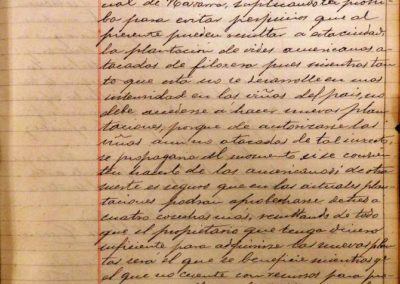 cial de Navarra, suplicando se prohi
ba para evitar perjuicios que al
presente pueden resultar á esta ciudad
la plantacion de vides americanas a-
tacadas de filoxera pues mientras tan
to que esta no se desarrolle en mas
intensidad en las viñas del pais, no
debe accederse á hacer nuevas plan
taciones, porque de autorizarse las
viñas aun no atacadas de tal insecto,
se propagaria al momento si se consien
te hacerlo de las americanas: de otra
suerte es seguro que en las actuales plan
taciones podran aprobecharse de tres a
cuatro cosechas mas, resultando de todo
que el propietario que tenga dinero
suficiente para adquirirse las nuevas plan
tas sera el que se beneficie mientras q.e
el que no cuente con recursos para